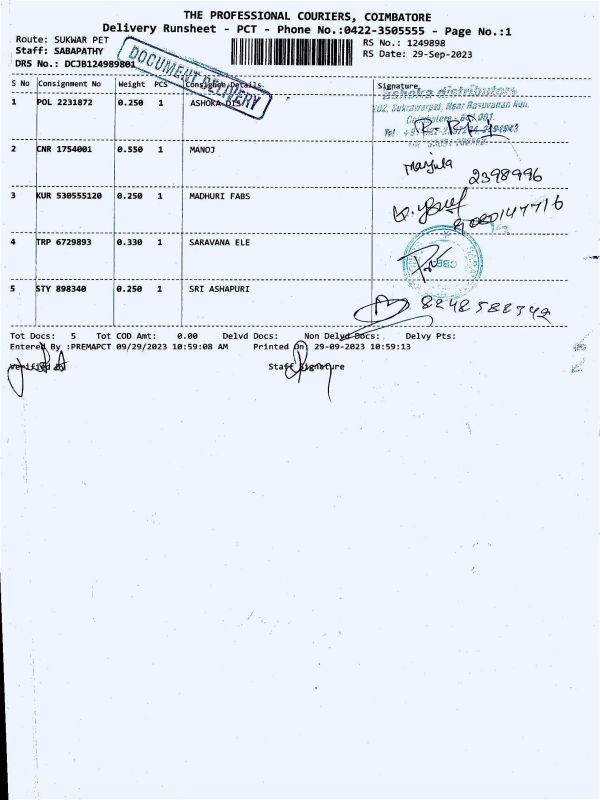 THE PROFESSIONAL COURIERS, COIMBATORE
Delivery Runsheet - PCT - Phone No.:0422-3505555 - Page No.:1
Route: SUKWAR PET
Staff: SABAPATHY
DRS No.: DCJB124989801
RS No.: 1249898
RS Date: 29-Sep-2023
DOCUMENT DELIVERY
S No Consignment No Weight PCS Consignee Details Signature
1 POL 2231872 0.250 1 ASHOKA DIST
Ashoka distributors
2 CNR 1754001 0.550 1 MANOJ
Manjula
2398996
3 KUR 530555120 0.250 1 MADHURI FABS
4 TRP 6729893 0.330 1 SARAVANA ELE
5 STY 898340 0.250 1 SRI ASHAPURI
8248588342
Tot Docs: 5 Tot COD Amt: 0.00 Delvd Docs: Non Delvd Docs: Delvy Pts:
Entered By :PREMAPCT 09/29/2023 10:59:08 AM Printed On: 29-09-2023 10:59:13
Verified By Staff Signature